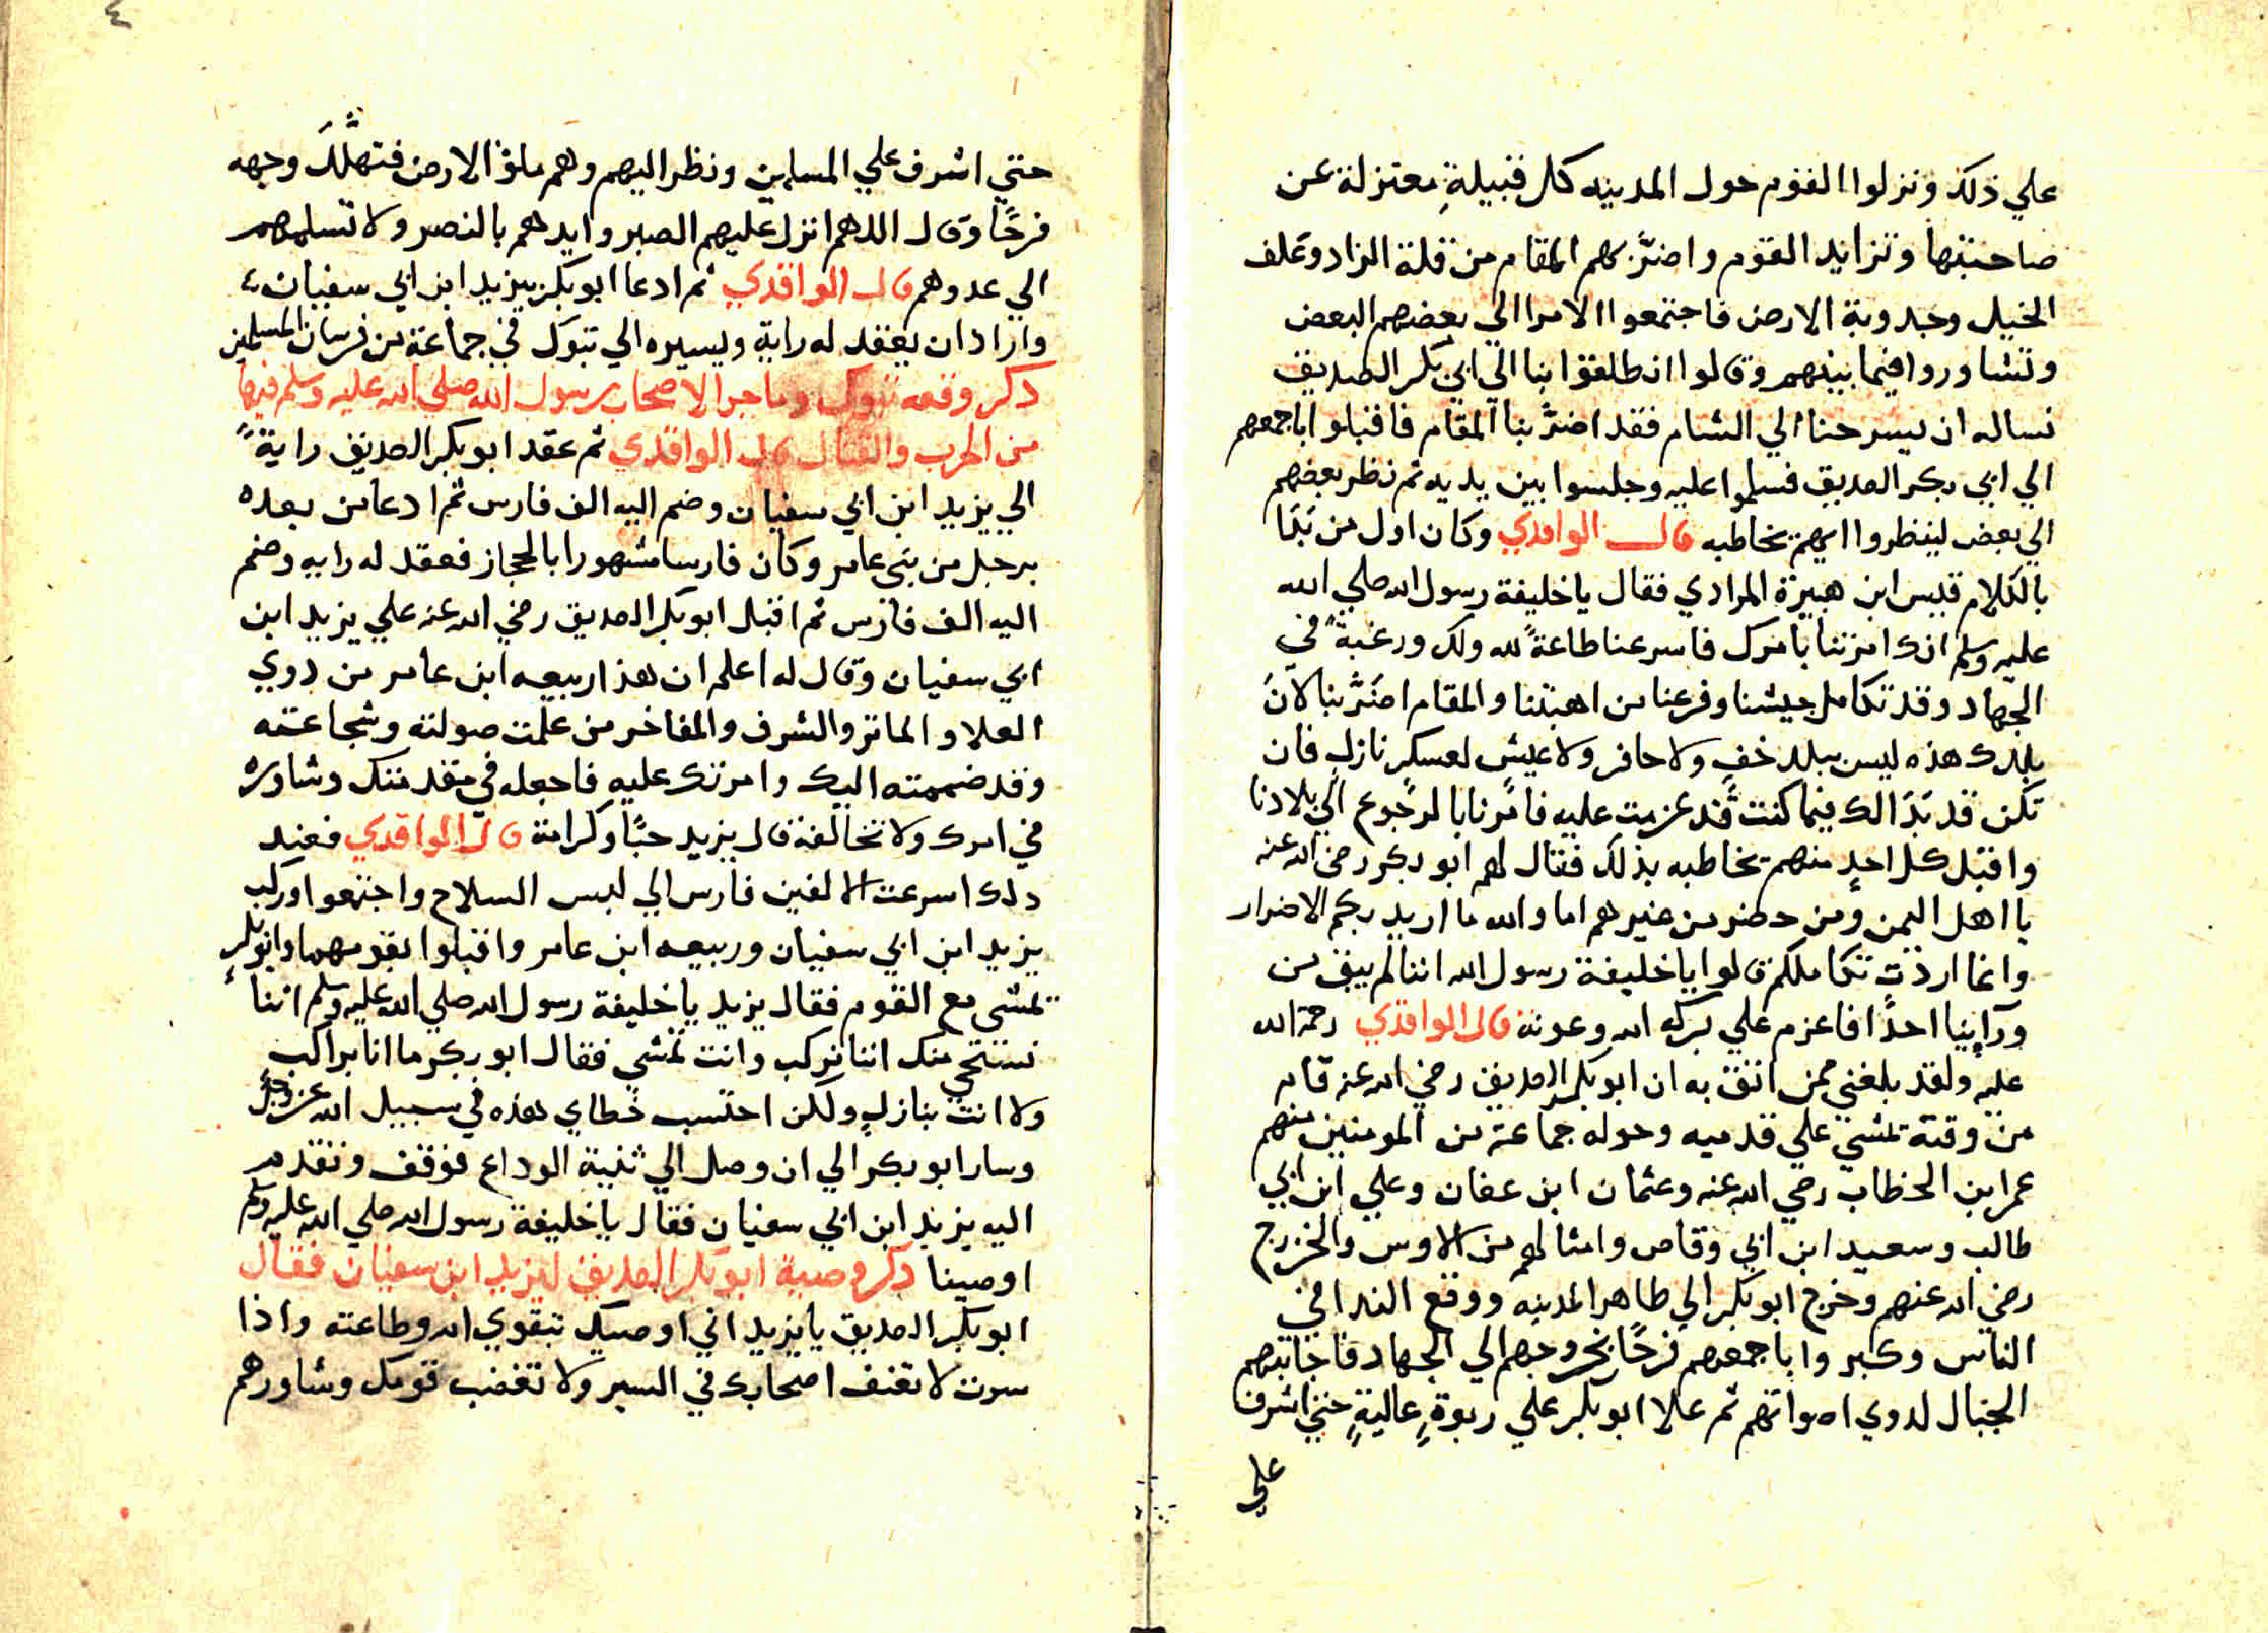 علي ذلك ونزلوا القوم حول المدينه كل قبيلةٍ معتزلة عن
صاحبتها وتزايد القوم واضرَّ بهم المقام من قلة الزاد وعلف
الخيل وجدوبة الارض فاجتمعوا الامرا الي بعضهم البعض
وتشاوروا فيما بينهم وقالوا انطلقوا بنا الي ابي بكر الصديق
نساله ان يسرحنا الي الشام فقد اضرَّ بنا المقام فاقبلوا باجمعهم
الي ابي بكر الصديق فسلموا عليه وجلسوا بين يديه ثم نظر بعضهم
الي بعض لينظروا ايهم يخاطبه قال الواقدي وكان اول من بَدَا
بالكلام قيس ابن هبيرة المرادي فقال يا خليفة رسول الله صلي الله
عليه وسلم انك امرتنا بامرك فاسرعنا طاعةً لله ولك ورغبةً في
الجهاد وقد تكامل جيشنا وفرغنا من اهبتنا والمقام اضَرَّ بنا لانَ
بلدك هذه ليس ببلد خفٍ ولا حافر ولا عيش لعسكر نازلٍ فان
تكن قد بَدَا لك فيما كنت قد عزمت عليه فامُرنا بالرجوع الي بلادنا
واقبل كل احدٍ منهم يخاطبه بذلك فقال لهم ابو بكر رضي الله عنه
يا اهل اليمن ومن حضر من غيرهم اما والله ما اريد بكم الاضرار
وانما اردت تكاملكم قالوا يا خليفة رسول الله اننا لم يبق من
ورآينا احدًا فاعزم علي بركه الله وعونة قال الواقدي رحمة الله
عليه ولقد بلغني ممن اثق به ان ابو بكر الصديق رضي الله عنه قام
من وقته تمشي علي قدميه وحوله جماعة من المومنين منهم
عمر ابن الخطاب رضي الله عنه وعثمان ابن عفان وعلي ابن ابي
طالب وسعيد ابن ابي وقاص وامثالهم من الاوس والخزرج
رضي الله عنهم وخرج ابو بكر الي ظاهر المدينه ووقع الندا في
الناس وكبروا باجمعهم فرحًا بخروجهم الي الجهاد فاجابتهم
الجبال لدوي اصواتهم ثم علا ابو بكر علي ربوةٍ عاليةٍ حتي اشرف
علي
٤
حتي اشرف علي المسلمين ونظر اليهم وهم ملؤ الارض فتهلَّلَ وجهه
فرحًا وقال اللهم انزل عليهم الصبر وايدهم بالنصر ولا تسلمهم
الي عدوهم قال الواقدي ثم ادعا ابو بكر بيزيد ابن ابي سفيان
واراد ان يعقد له راية ويسيره الي تبوك في جماعة من فرسان المسلمين
ذكر وقعه تبوك وما جرا لاصحاب رسول الله صلي الله عليه وسلم فيها
من الحرب والقتال قال الواقدي ثم عقد ابو بكر الصديق رايةً
الي يزيد ابن ابي سفيان وضم اليه الف فارس ثم ادعا من بعده
برجل من بني عامر وكان فارسا مشهورا بالحجاز فعقد له رايه وضم
اليه الف فارس ثم اقبل ابو بكر الصديق رضي الله عنه علي يزيد ابن
ابي سفيان وقال له اعلم ان هذا ربيعه ابن عامر من ذوي
العلا والماثر والشرف والمفاخر من علمت صولته وشجاعته
وقد ضممته اليك وامرتك عليه فاجعله في مقدمتك وشاوره
في امرك ولا تخالفة قال يزيد حبًا وكرامة قال الواقدي فعند
ذلك اسرعت الالفين فارس الي لبس السلاح واجتمعوا وركب
يزيد ابن ابي سفيان وربيعه ابن عامر واقبلوا بقومهما وابو بكر
تمشي مع القوم فقال يزيد يا خليفة رسول الله صلي الله عليه وسلم اننا
نستحي منك اننا نركب وانت تمشي فقال ابو بكر ما انا براكب
ولا انت بنازل ولكن احتسب خطاي هذه في سبيل الله عز وجل
وسار ابو بكر الي ان وصل الي ثنية الوداع فوقف وتقدم
اليه يزيد ابن ابي سفيان فقال يا خليفة رسول الله صلي الله عليه وسلم
اوصينا ذكر وصية ابو بكر الصديق ليزيد ابن سفيان فقال
ابو بكر الصديق يا يزيد اني اوصيك بتقوي الله وطاعته واذا
سرت لا تعنف اصحابك في السير ولا تغضب قومك وشاورهم